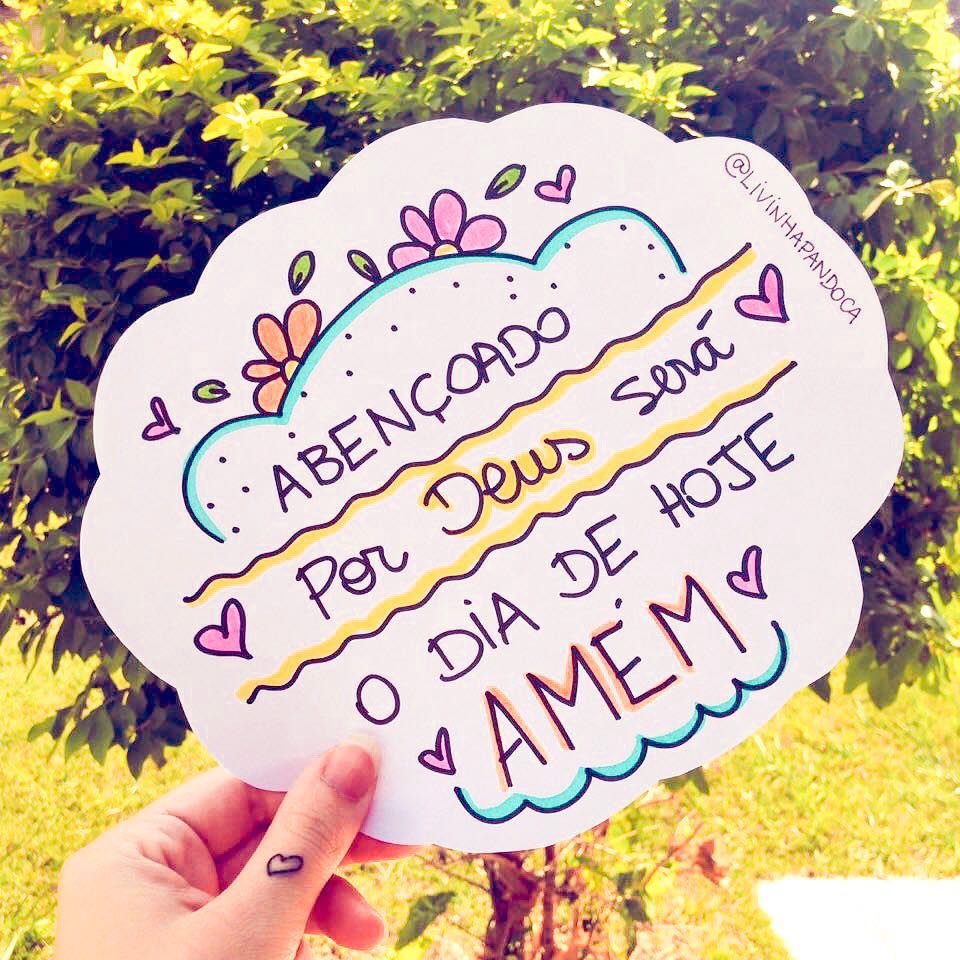 @LIVINHAPANDOCA
ABENÇOADO
Por Deus será
O DIA DE HOJE
AMÉM